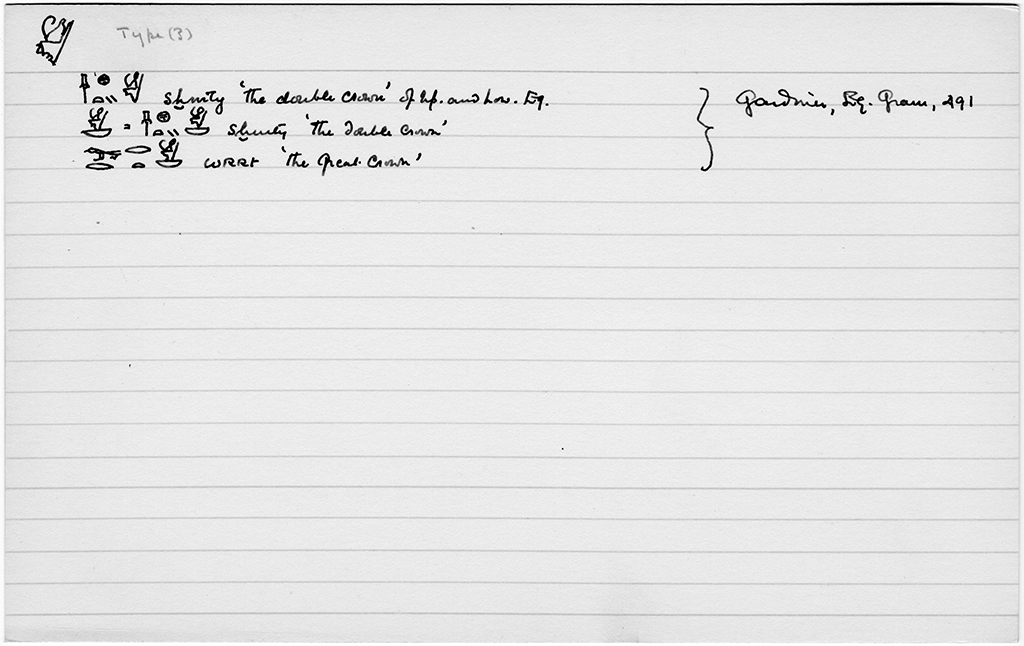 Type (3)
sḫmty 'the double crown' of Up. and Low. Eg.
sḫmty 'the double crown'
wrrt 'the great crown'
Gardiner, Eg. Gram, 491